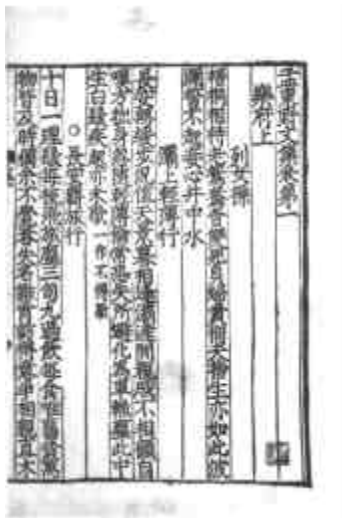 孟東野文集卷第一
樂府上
列女操
梧桐相待老鴛鴦會雙死貞婦貴徇夫捨生亦如此波
瀾誓不起妾心井中水
灞上輕薄行
長安無緩步況值天景暮相逢灞滻間親戚不相顧自
嘆方拙身忽隨輕薄倫常恐失所避化為車轍塵此中
生白髮疾走亦未歇一作不得歇
長安羈旅行
十日一理髮每梳飛旅塵三旬九過飲每食唯舊貧萬
物皆及時獨余不覺春失名誰肯訪得意爭相親直木